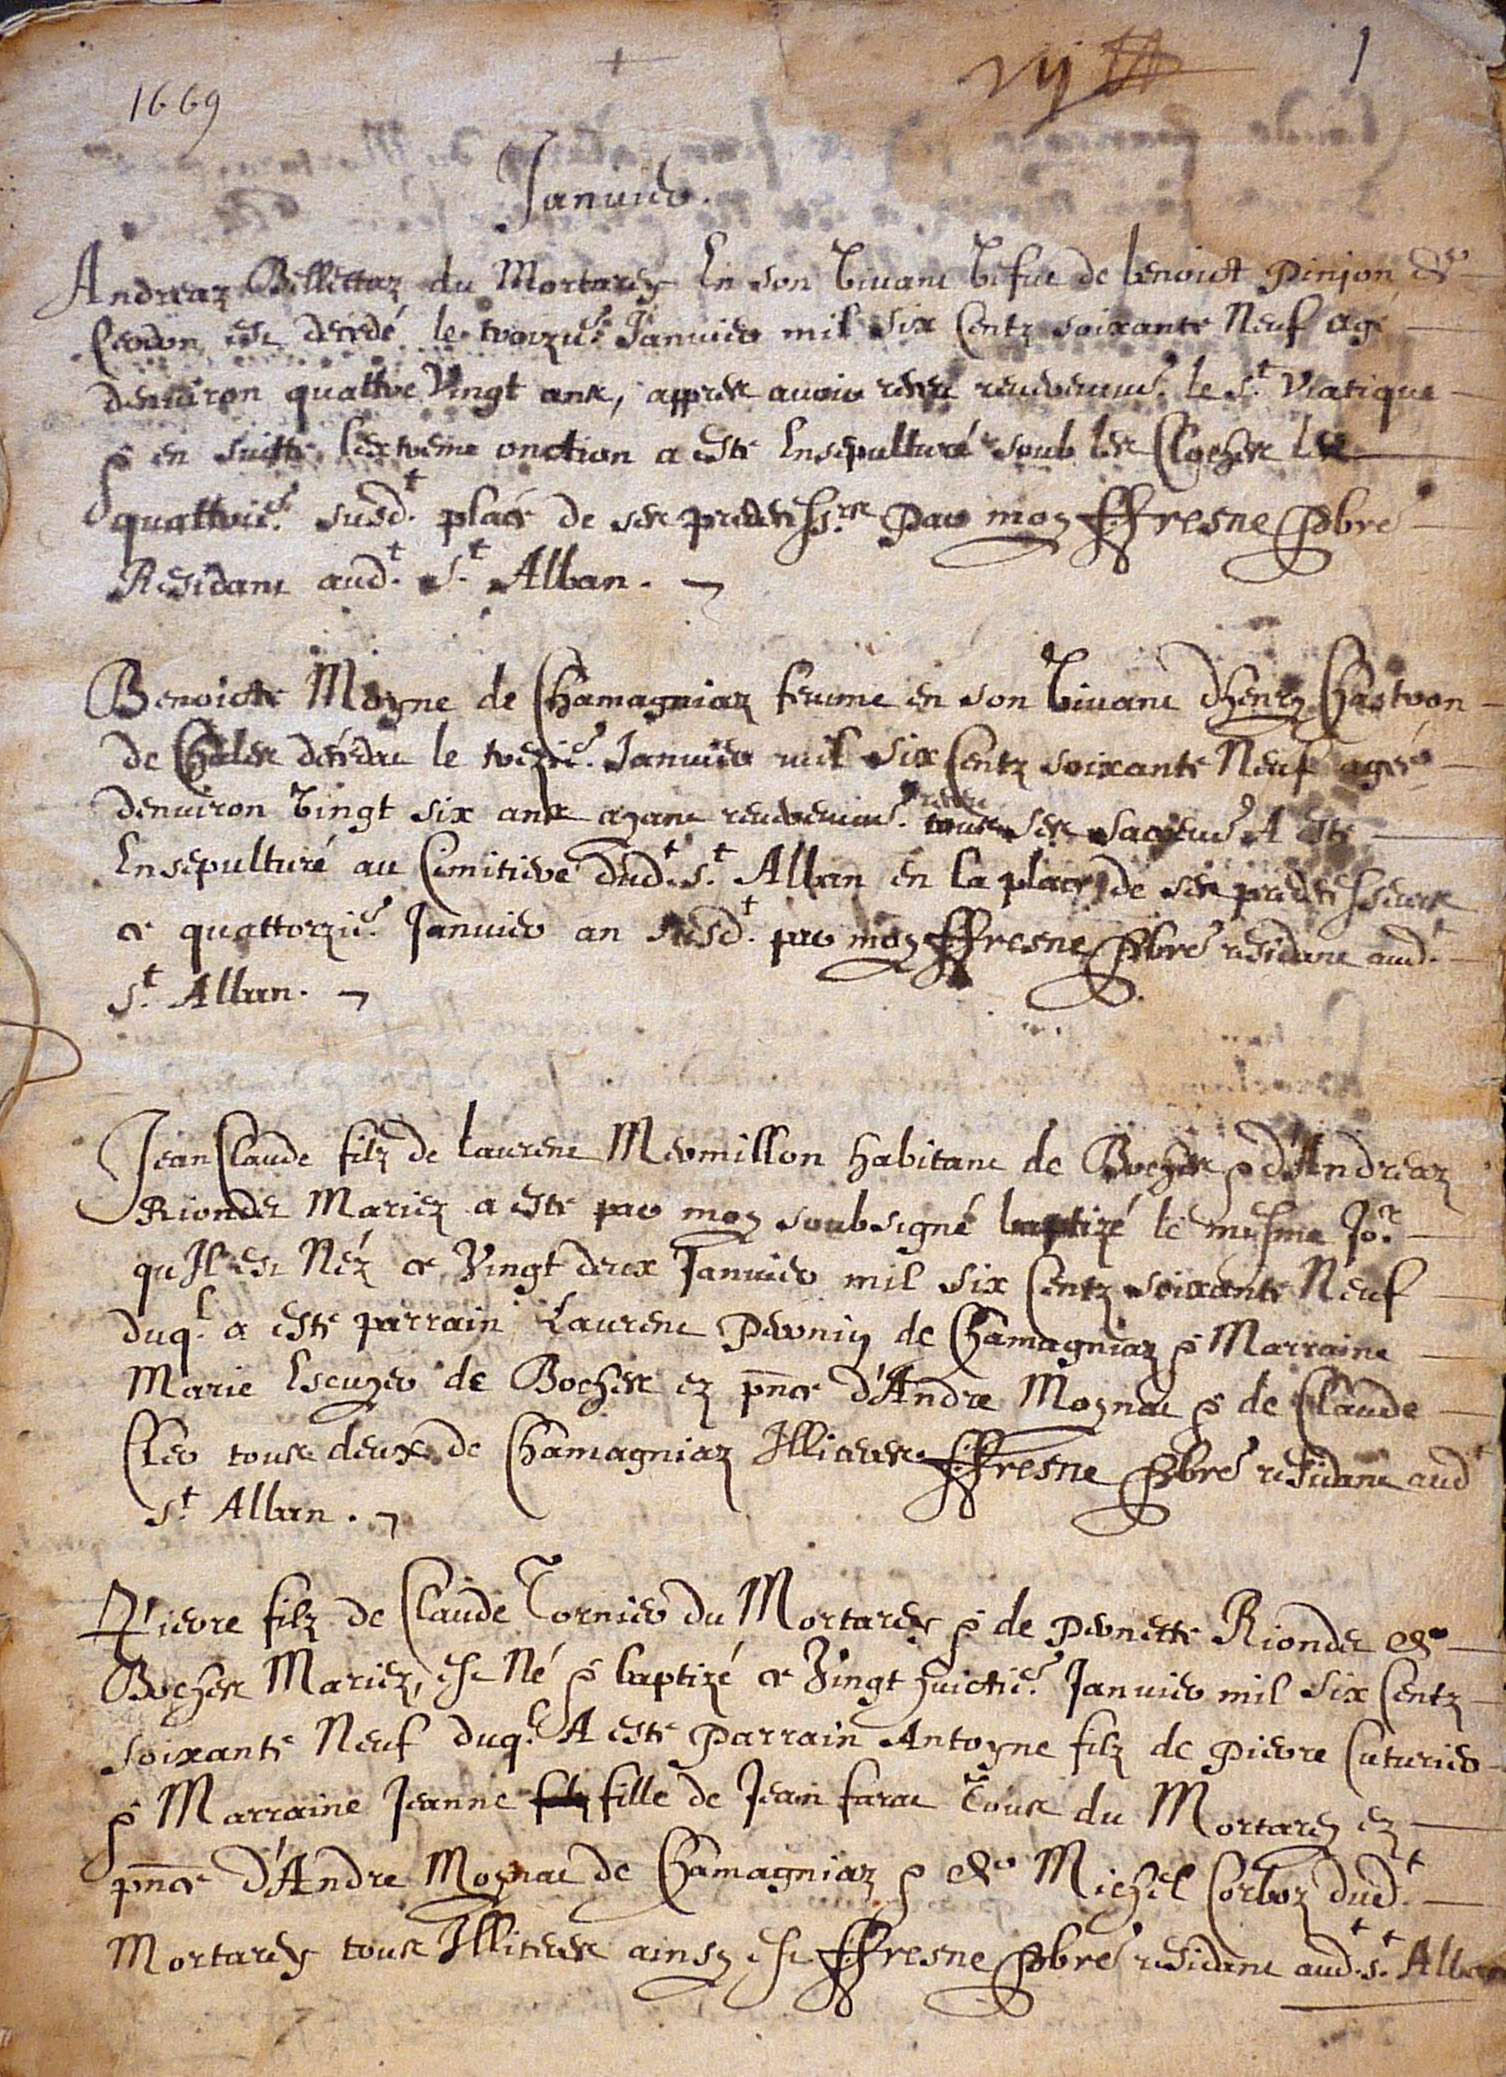 1669
1
Januier.
Andreaz Billettaz du Mortarey En son viuant vefue de benoict Pinjon de
Cerdon est décédé le treizie. Januier mil six Centz soixante Neuf agé
denuiron quattre Vingt ans, appres auoir receu reueremmt. le St. Viatique
& en suitte lextreme onction a esté Ensepulturé soub les Cloches le
quattorie. susdt. place de ses predecessrs Par moy ffresne Pbre
Residant audt. St. Alban.
Benoicte Moyne de Chamagniaz femme en son viuant dhenry Chastron
de Chales décédée le trezie. Januier mil six Centz soixante Neuf agée
denuiron vingt six ans ayant reueremmt. receu tous ses sacremts A esté
Ensepulturé au Cemitiere dudt. St. Alban en la place de ses predecesseurs
ce quattorzie. Januier an susdt. par moy ffresne Pbre residant audt.
St. Alban.
Jean Claude filz de laurent Mermillon habitant de Boches & d'Andreaz
Riondet Mariez a esté par moy soubsigné baptizé le mesme Jor.
qu Il est Néz ce Vingt deux Januier mil six Centz soixante Neuf
duql. a esté parrain Laurent Pernin de Chamagniaz & Marraine
Marie Escuyer de Boches ez pnce d'Andre Moynat & de Claude
Cler tous deux de Chamagniaz Illiteres ffresne Pbre residant audt
St. Alban.
Pierre filz de Claude Tornier du Mortarey & de Pernette Riondet de
Boches Mariez, est Né & baptizé ce Vingt huictie. Januier mil six Centz
soixante Neuf duql. A esté Parrain Antoyne filz de Pierre Cuturier
& Marraine Jeanne filz fille de Jean farat Tous du Mortarey ez
pnce d'Andre Moynat de Chamagniaz & de Michel Corboz dudt.
Mortarey tous Illiteres ainsy est ffresne Pbre residant audt. St. Alban